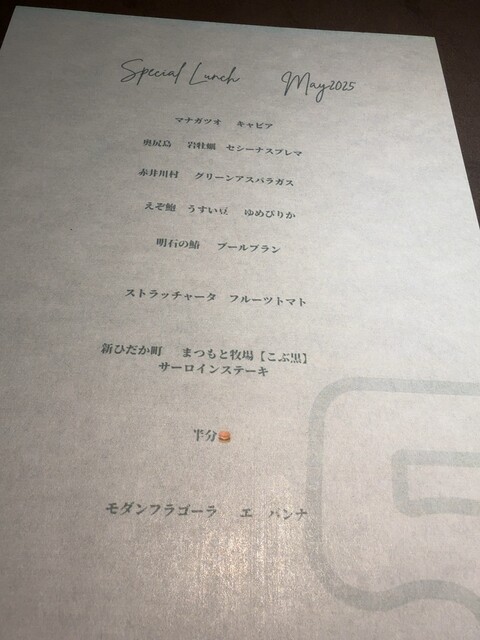 Special Lunch May2025
マナガツオ キャビア
奥尻島 岩牡蠣 セシーナスプレマ
赤井川村 グリーンアスパラガス
えぞ鮑 うすい豆 ゆめぴりか
明石の鮨 ブールブラン
ストラッチャータ フルーツトマト
新ひだか町 まつもと牧場【こぶ黒】
サーロインステーキ
半分🍔
モダンフラゴーラ エ パンナ